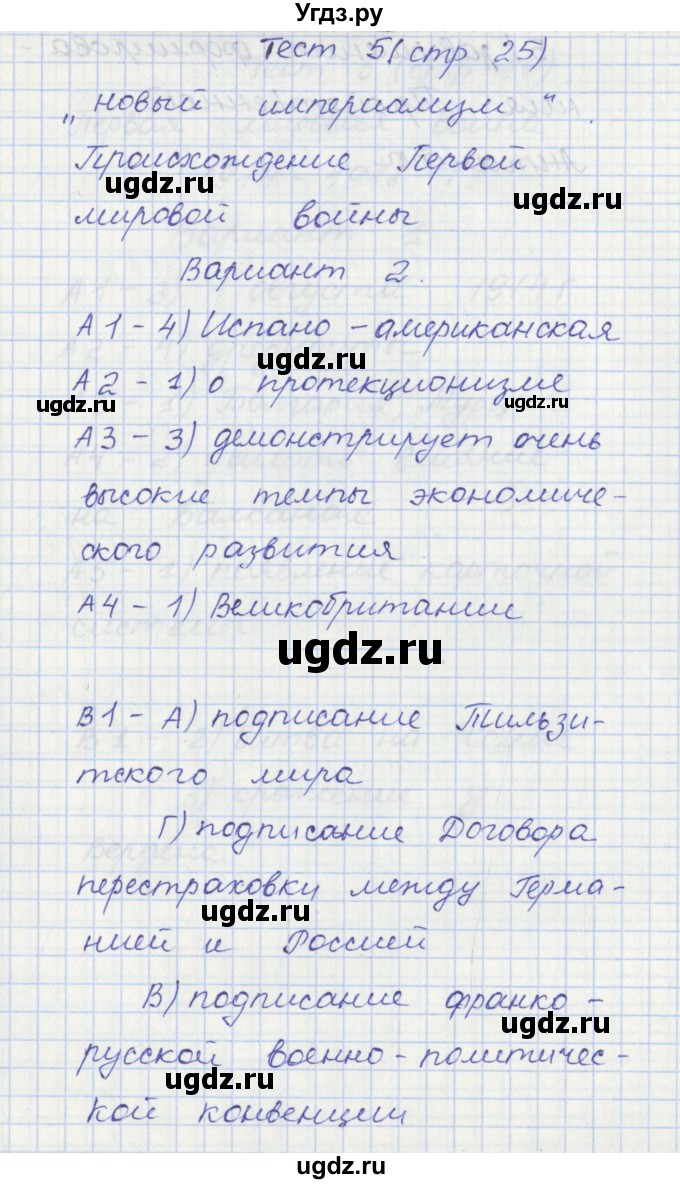 Угдз.ру
Тест 5 (стр 25)
„новый империализм“.
Происхождение Первой
ugdz.ru
ugdz.ru
мировой войны
Вариант 2.
А1 - 4) Испано - американская
ugdz.ru
А2 - 1) о протекционизме
ugdz.ru
ugdz.ru
А3 - 3) демонстрирует очень
высокие темпы экономиче-
ского развития.
А4 - 1) Великобритании
ugdz.ru
В1 - А) подписание Тильзи-
тского мира
Г) подписание Договора
перестраховки между Герма-
ugdz.ru
нией и Россией
В) подписание франко -
ugdz.ru
русской военно - политичес-
ugdz.ru
кой конвенции
ugdz.ru